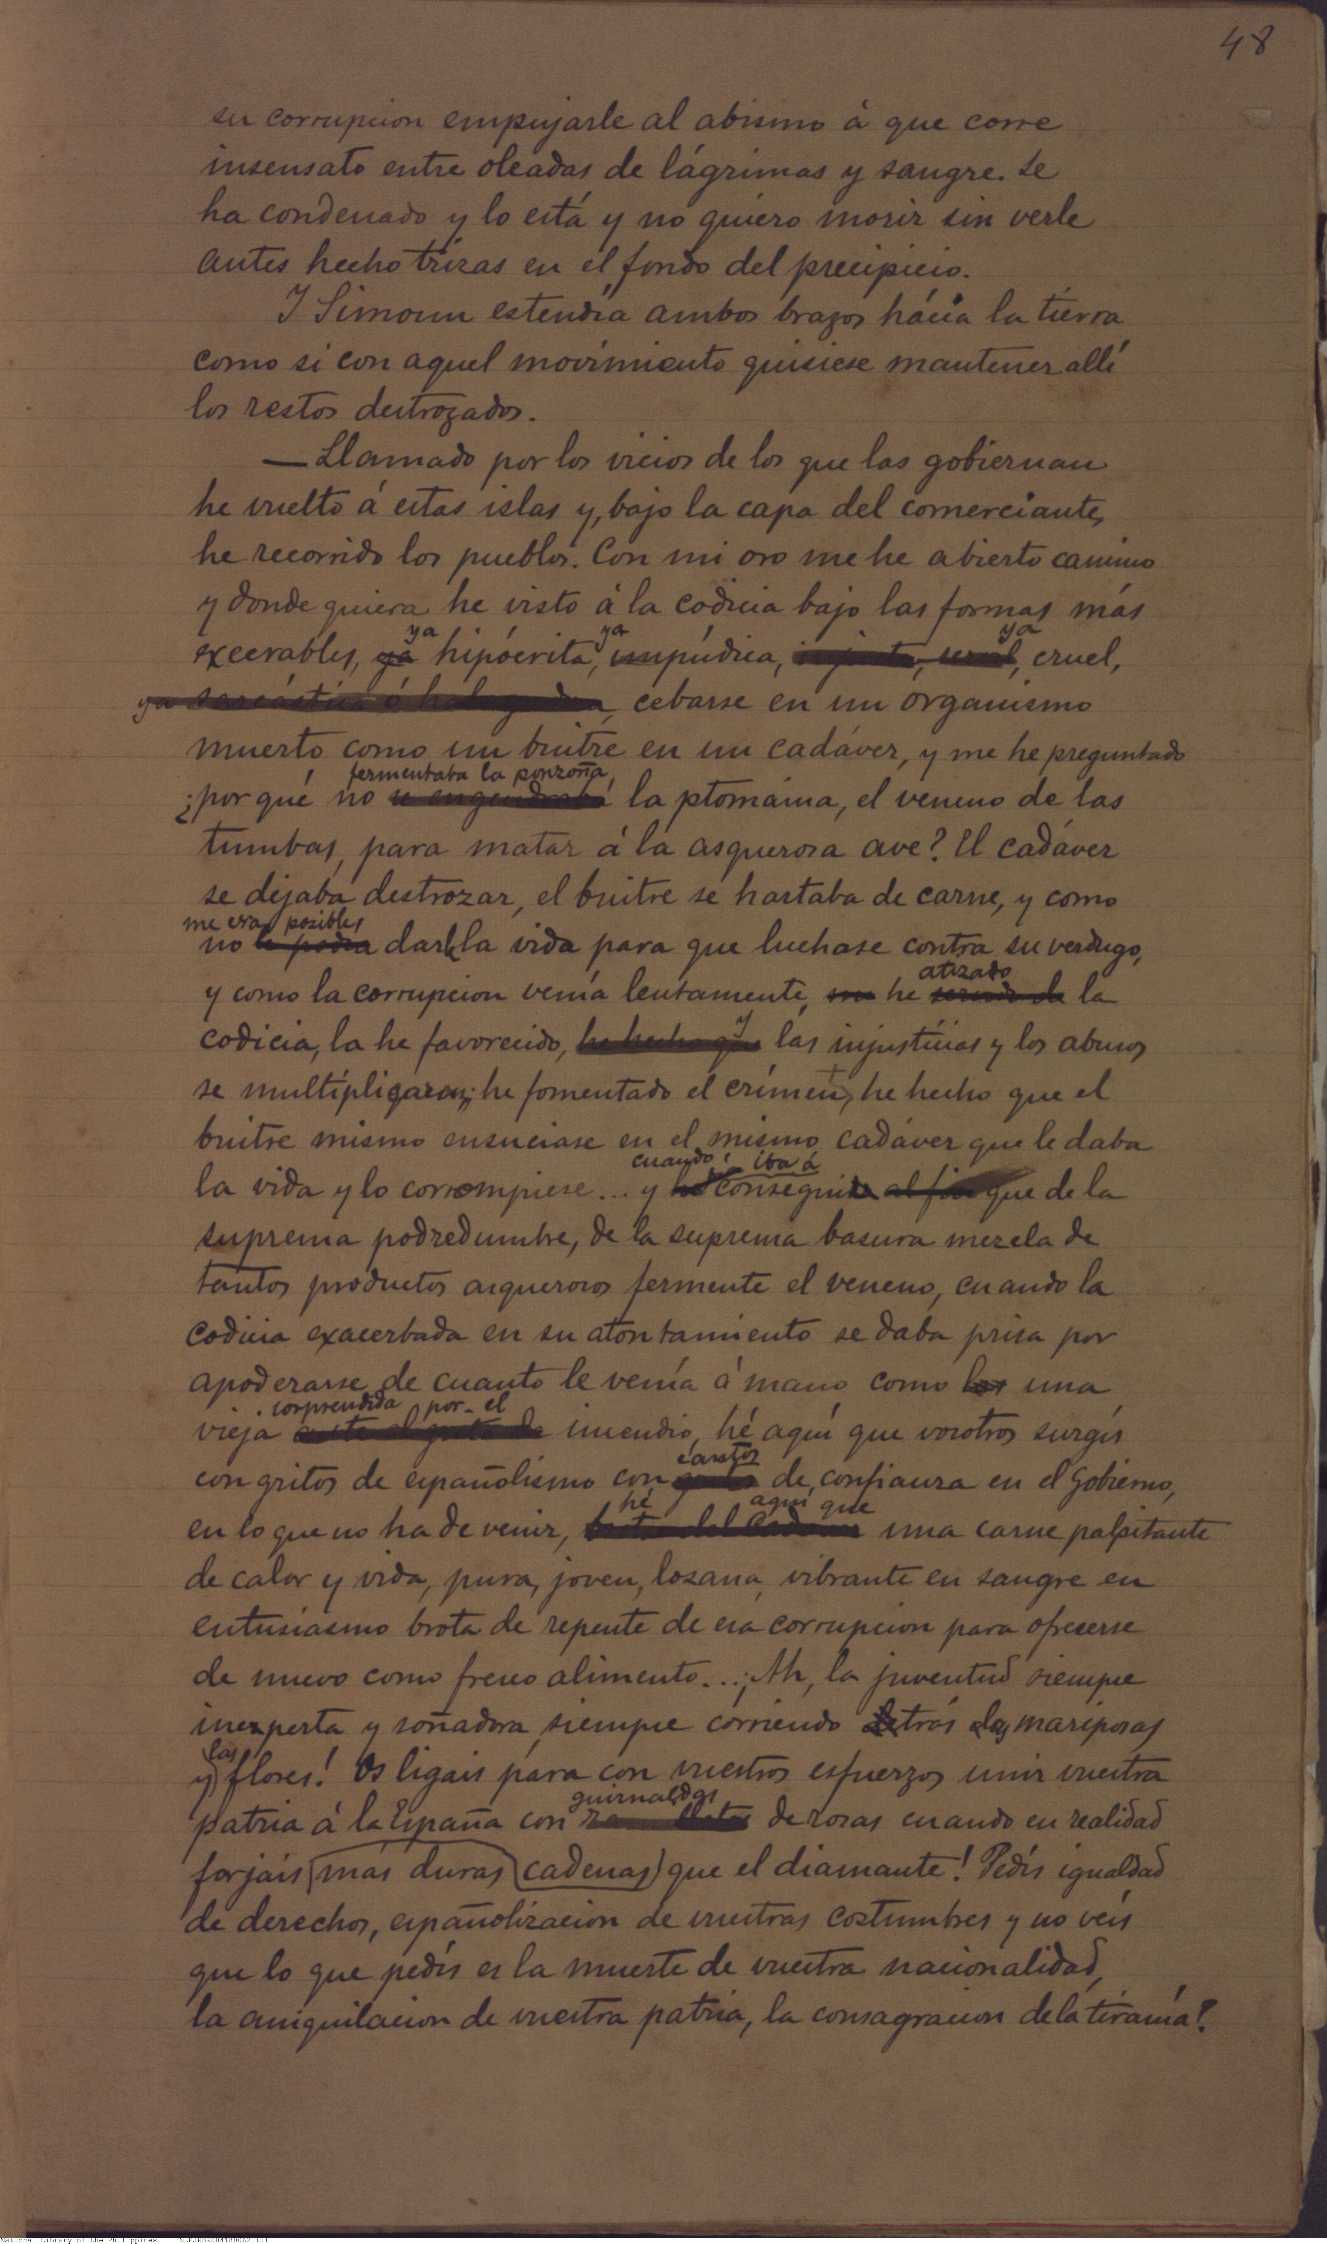 48
su corrupcion empujarle al abismo á que corre
insensato entre oleadas de lágrimas y sangre. Se
ha condenado y lo está y no quiero morir sin verle
antes hecho trizas en el fondo del precipicio.
Y Simoun estendía ambos brazos hácia la tierra
como si con aquel movimiento quisiese mantener allí
los restos destrozados.
—Llamado por los vicios de los que las gobiernan
he vuelto á estas islas y, bajo la capa del comerciante,
he recorrido los pueblos. Con mi oro me he abierto camino
y donde quiera he visto á la codicia bajo las formas más
ya ya ya
execrables, ya hipócrita, impúdica, cruel,
ya sarcástica ó halagadora, cebarse en un organismo
muerto como un buitre en un cadáver, y me he preguntado
fermentaba la ponzoña,
¿por qué no se engendraba la ptomaina, el veneno de las
tumbas, para matar á la asquerosa ave? El cadáver
se dejaba destrozar, el buitre se hartaba de carne, y como
me era posible
no le podia darle la vida para que luchase contra su verdugo,
atizado
y como la corrupcion venía lentamente, he la
y
codicia, la he favorecido, he hecho que las injusticias y los abusos
se multiplicaron; he fomentado el crímen, he hecho que el
buitre mismo ensuciase en el mismo cadáver que le daba
cuando iba á
la vida y lo corrompiese... y he conseguir al fin que de la
suprema podredumbre, de la suprema basura mezcla de
tantos productos asquerosos fermente el veneno, cuando la
codicia exacerbada en su atontamiento se daba prisa por
apoderarse de cuanto le venía á mano como una
sorprendida por el
vieja ante el grito de incendio, hé aquí que vosotros surgís
cantos
con gritos de españolismo con de confianza en el Gobierno,
hé aquí que
en lo que no ha de venir, brota del cadaver una carne palpitante
de calor y vida, pura, joven, lozana, vibrante en sangre en
entusiasmo brota de repente de esa corrupcion para ofrecerse
de nuevo como fresco alimento...¡Ah, la juventud siempre
inexperta y soñadora, siempre corriendo detrás las mariposas
las
y flores! Os ligais para con vuestros esfuerzos unir vuestra
guirnaldas
patria á la España con de rosas cuando en realidad
forjais más duras cadenas que el diamante! Pedís igualdad
de derechos, españolizacion de vuestras costumbres y no veis
que lo que pedís es la muerte de vuestra nacionalidad,
la aniquilacion de vuestra patria, la consagracion de la tiranía!